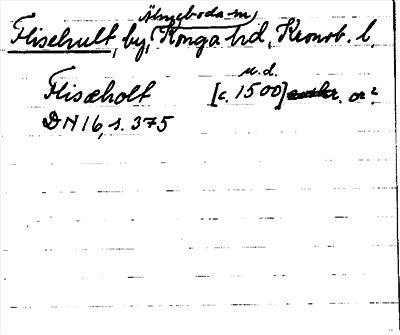 Älmeboda sn,
Flisehult, by, Konga hd, Kronob. l.
u.d.
Flisæholt [c. 1500] or?
DN 16, s. 375